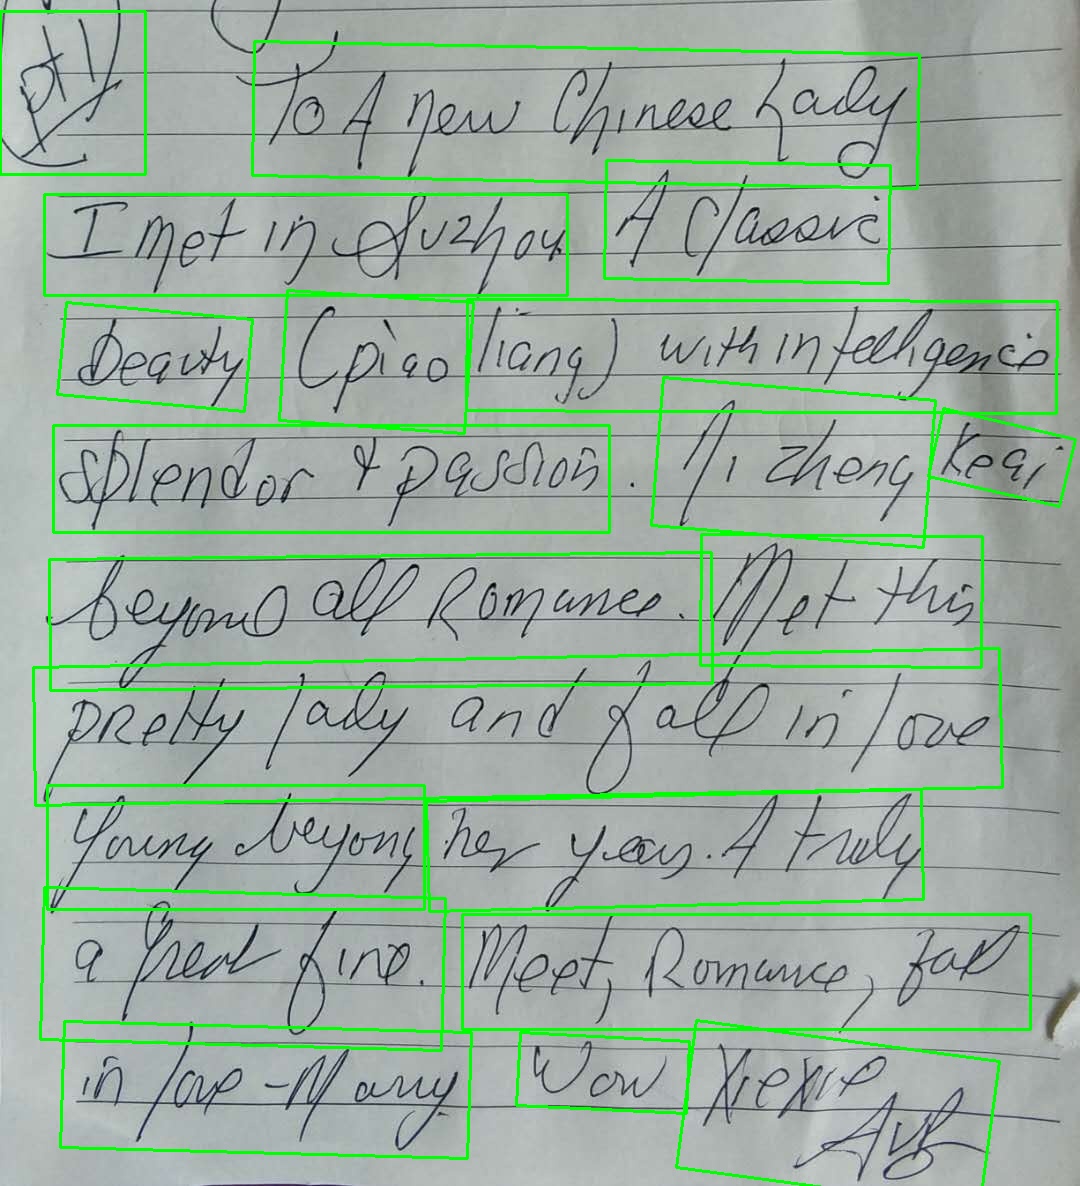 pt 1
To A new Chinese Lady
I met in Suzhou A Classic
beauty (piao liang) with intelligence
splendor & passion. Ni zheng Keai
beyond all Romance. Met this
pretty lady and fall in love
Young beyong her years. A truly
a great fine. Meet, Romance, fall
in love - Marry Wow Xiexie